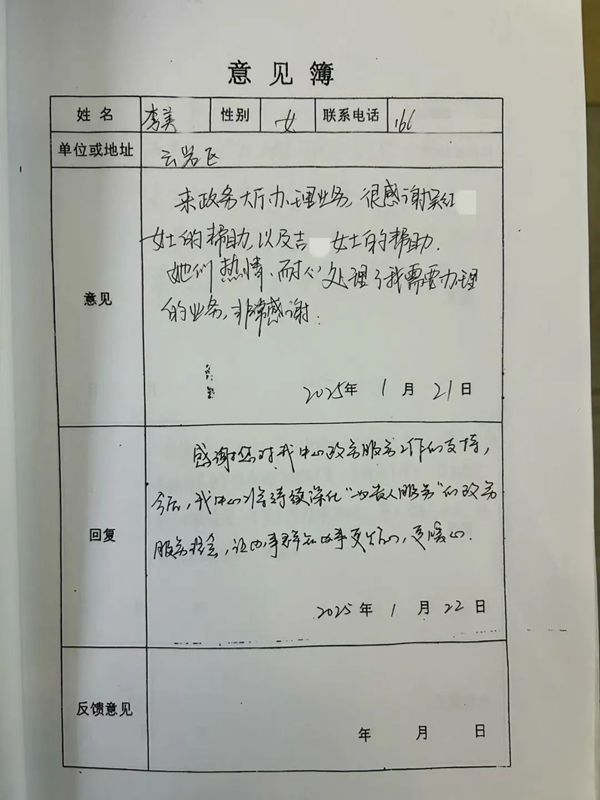 意见簿
姓名 李美 性别 女 联系电话 166
单位或地址 云岩区
意见
来政务大厅办理业务,很感谢吴红
女士的帮助,以及吉 女士的帮助.
她们热情、耐心处理了我需要办理
的业务,非常感谢.
2025年 1 月 21 日
回复
感谢您对我中心政务服务工作的支持,
今后,我中心将持续深化“ 贵人服务”的政务
服务 ,让办事群众办事更 ,更暖心.
2025 年 1 月 22 日
反馈意见
年 月 日